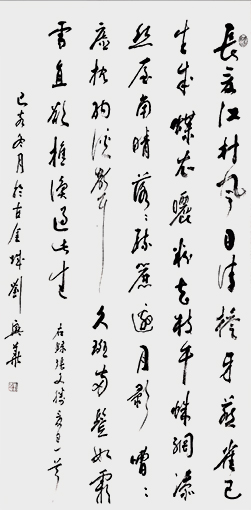 長夏江村風日清檐牙燕雀已
生成蝶衣曬粉花枝午蛛網添
絲屋角晴落々疏簾邀月影嘈々
虛枕納溪聲久斑兩鬢如霜
雪直欲樵漁過此生
右録張文潛夏日一首
己亥冬月於古金城劉興華